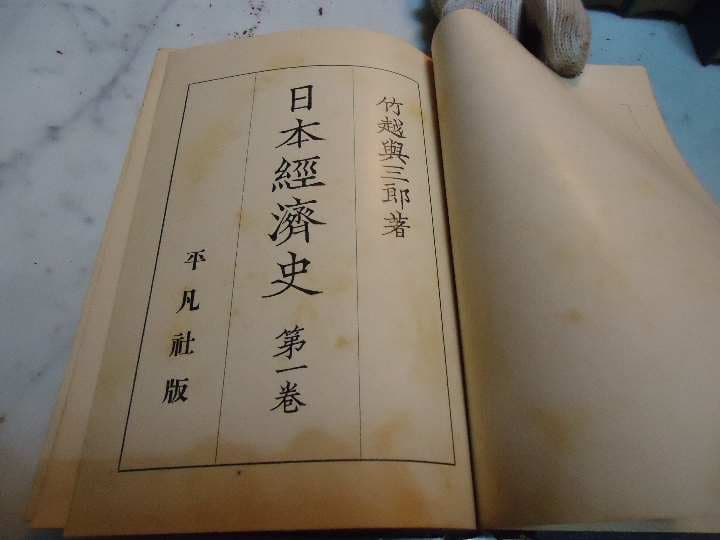 竹越與三郎著
日本經濟史 第一卷
平凡社版